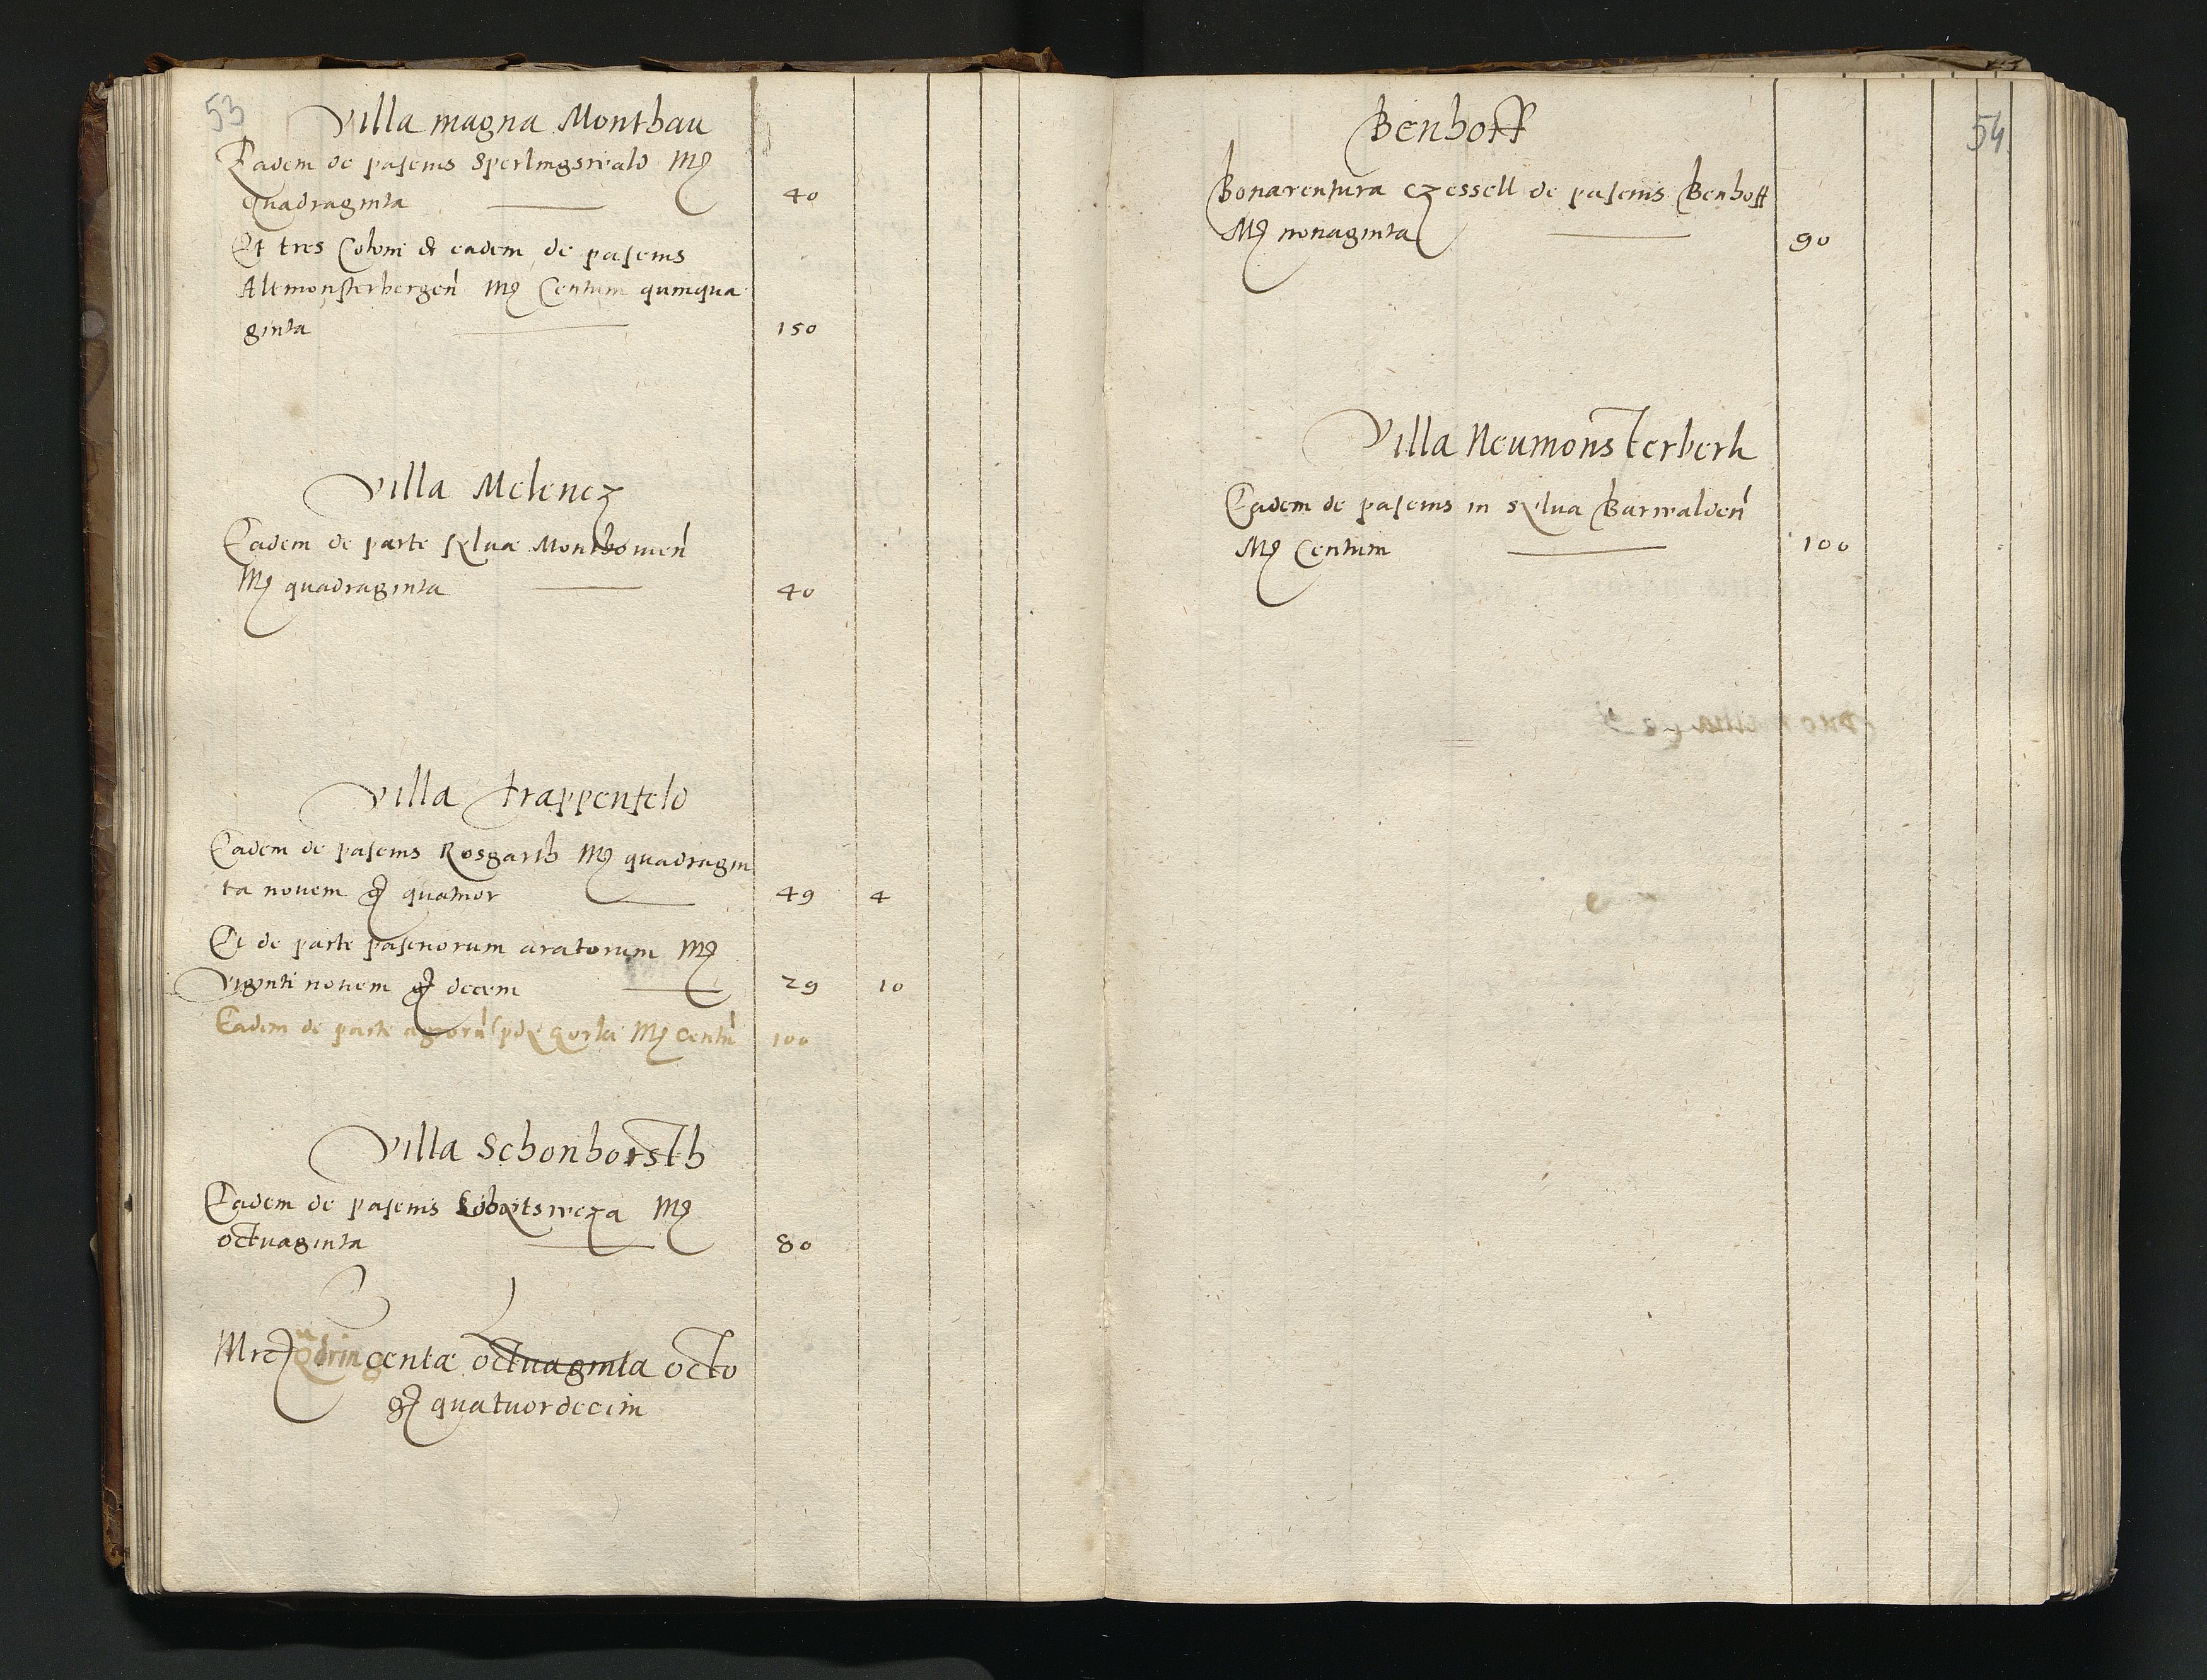 53
Villa magna Monthau
Eadem de pascuis Sperlingswald Mr
Quadraginta 40
Et tres Coloni et eadem de pascuis
Altmonsterbergen Mr Centum quinqua
ginta 150
Villa Melencz
Eadem de parte sylvae Monthowien
Mr quadraginta 40
Villa Trappenfeld
Eadem de pascuis Rosgarth Mr quadragin
ta novem gr quatuor 49 4
Et de parte pascuorum aratorum Mr
viginti novem gr decem 29 10
Eadem de parte agrorum Mr Centum 100
Villa Schonhorsth
Eadem de pascuis Mr
octuaginta 80
Mrc qdringentae octuaginta octo
gr quatuordecim
54
Benhoff
Bonaventura Czessell de pascuis Benhoff
Mr nonaginta 90
Villa Neumonsterberk
Eadem de pascuis in sylva Barwalden
Mr Centum 100